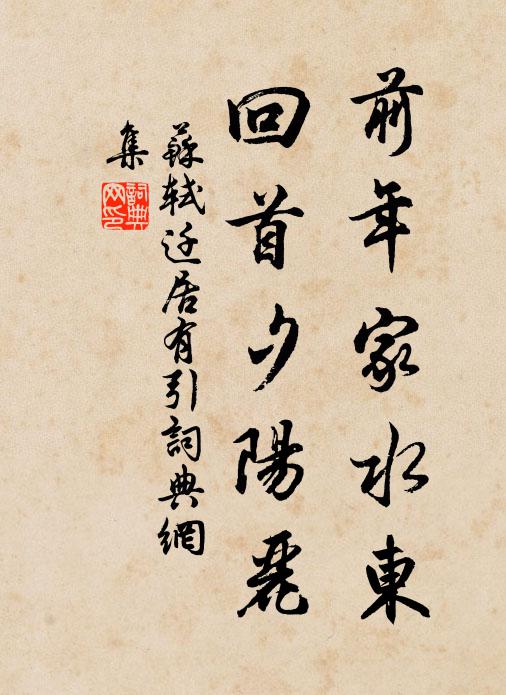 前年家水東
回首夕陽麗
蘇軾迁居有引詞典網
集
詞典
网印